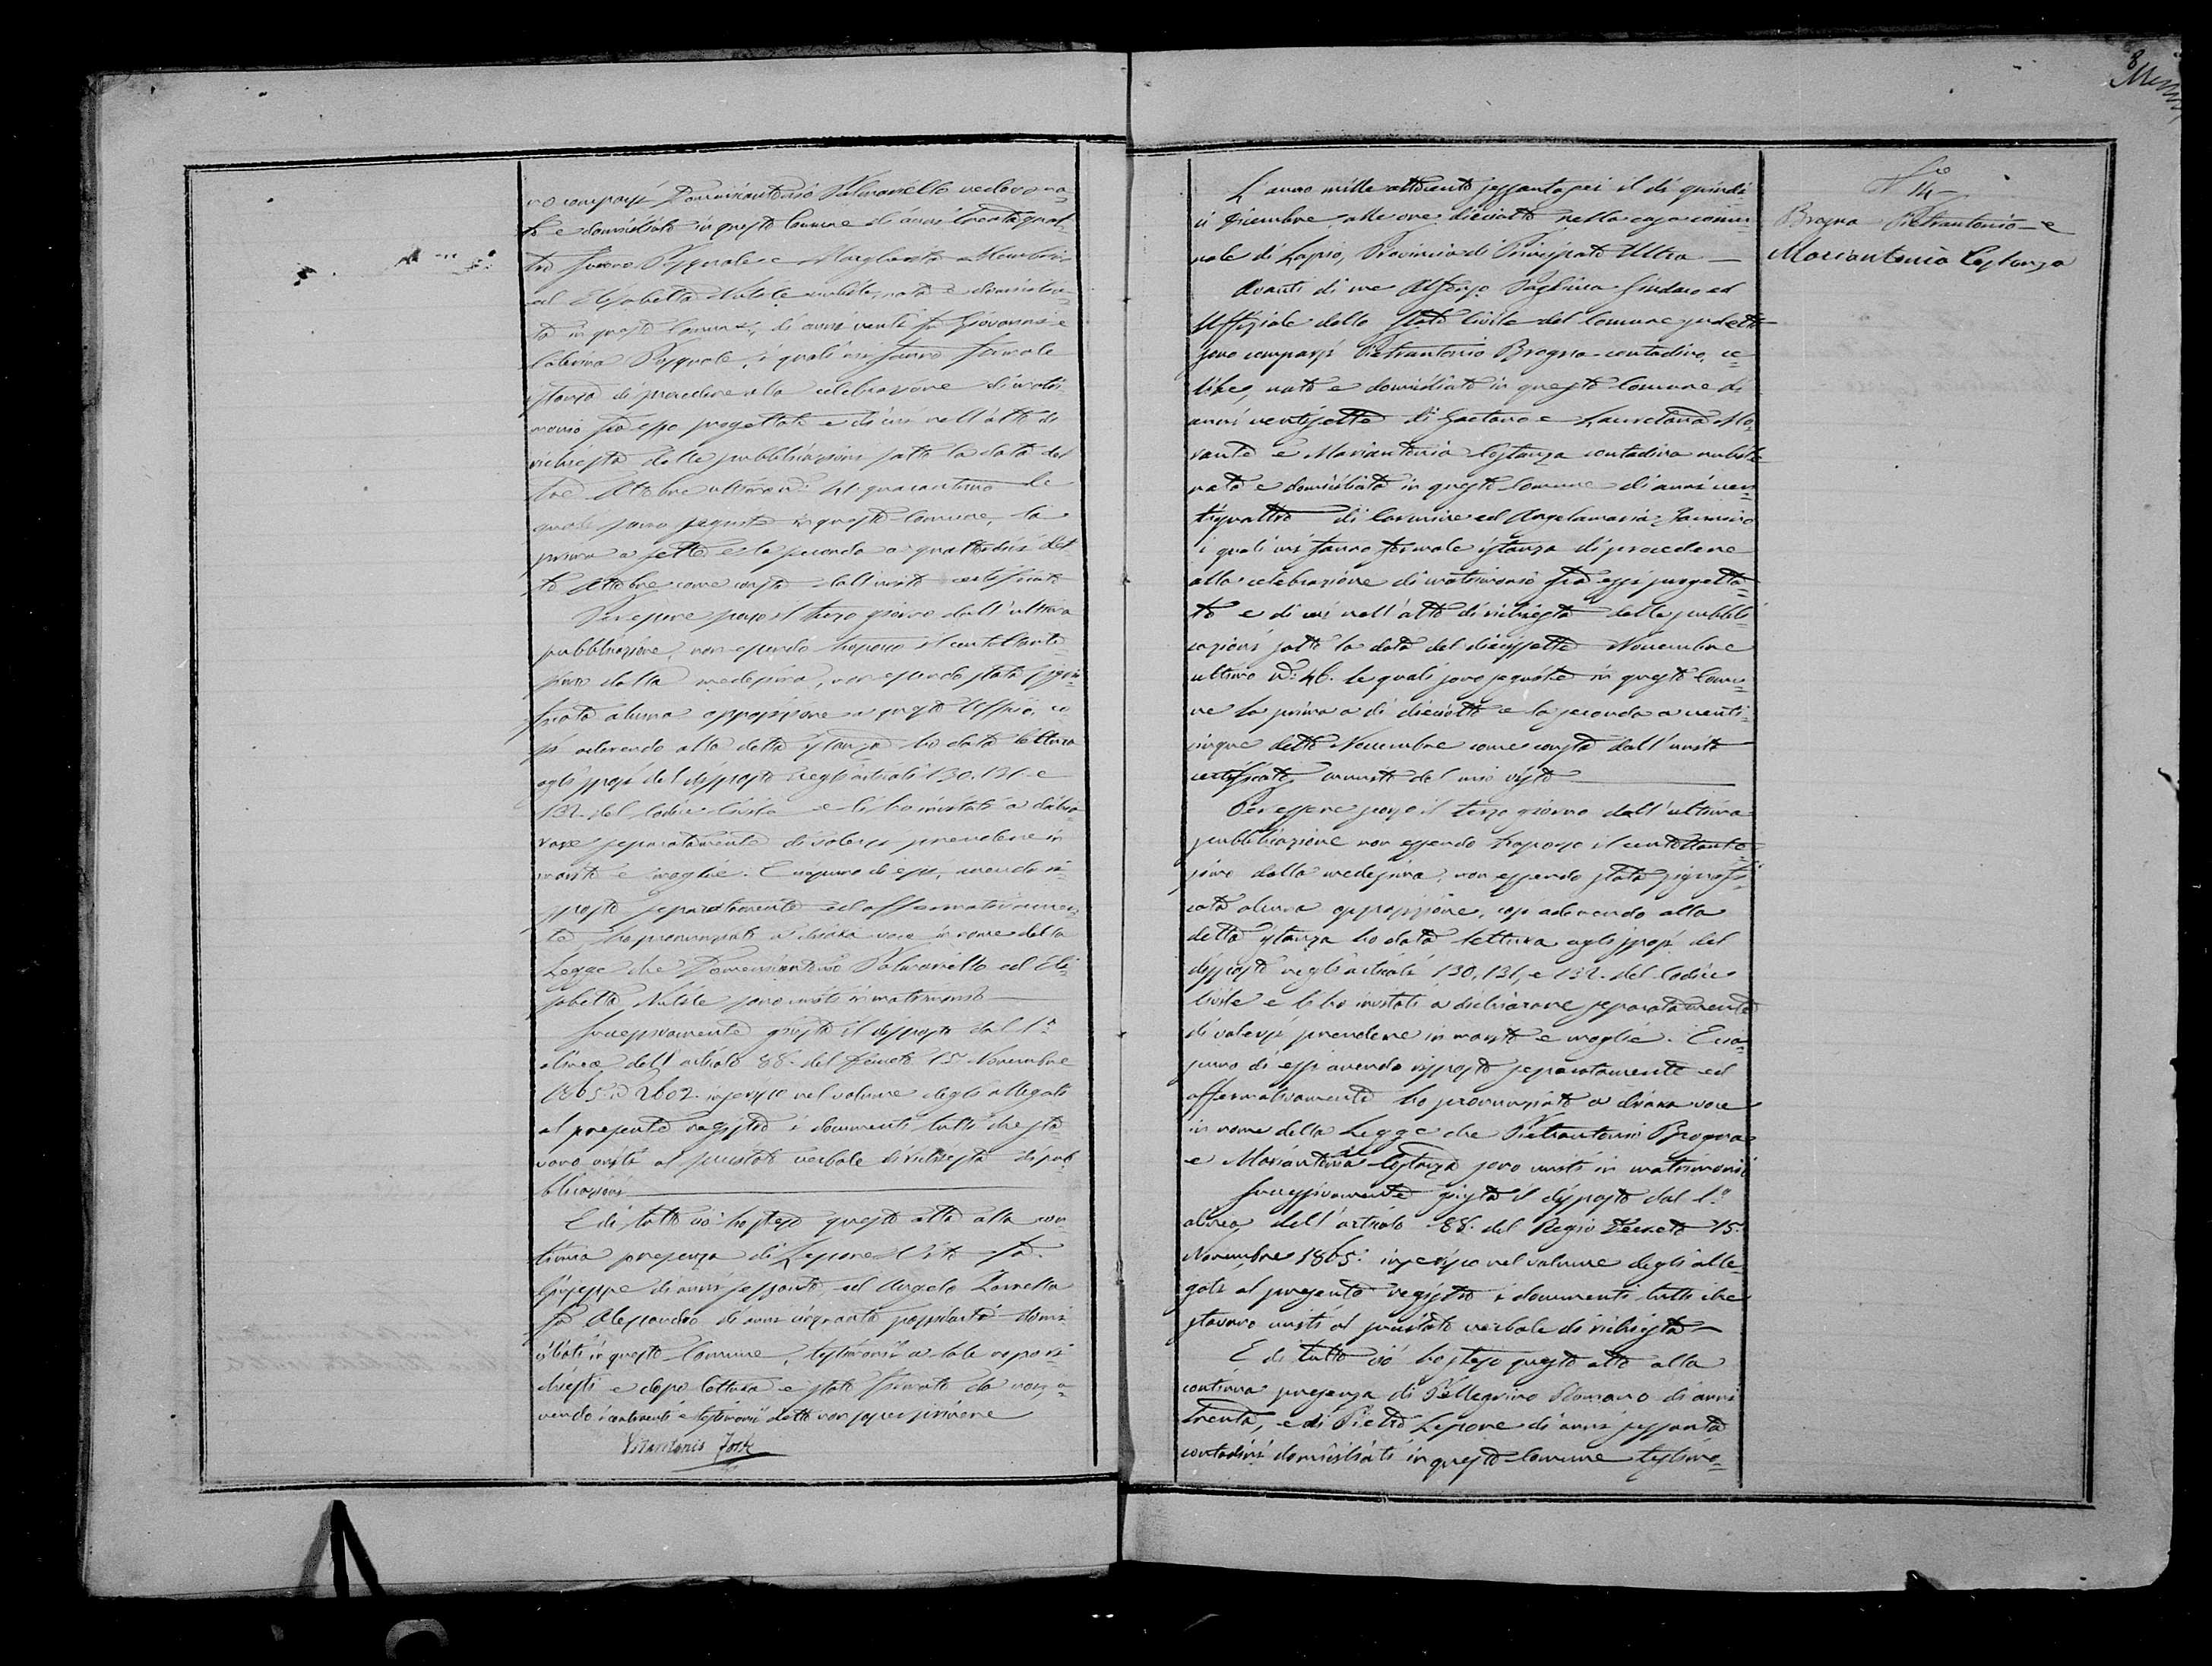 no comparsi Domenicantonio Palmariello vedovo na=
to e domiciliato in questo Comune di anni trentaquat=
tro Pasquale e Margherita
ed Elisabetta Natale nubile, nata e domicilia=
ta in questo Comune, di anni venti fu Giovanni e
Caterina Pasquale, i quali mi fanno formale
istanza di procedere alla celebrazione di matri=
monio fra essi progettato e di cui nell'atto di
richiesta delle pubblicazioni sotto la data del
tre Ottobre ultimo n.° 41 quarantuno le
quali sono seguite in questo Comune, la
prima a sette e la seconda a quattordici det=
to Ottobre come consta dall'unito certificato
Per essere scorso il terzo giorno dall'ultima
pubblicazione, non essendo trascorso il centottante=
simo dalla medesima, non essendo stata signi=
ficata alcuna opposizione a questo Uffizio, co=
sì aderendo alla detta istanza ho dato lettura
agli sposi del disposto negli articoli 130. 131. e
132. del Codice Civile e li ho invitati a dichia=
rare separatamente di volersi prendere in
marito e moglie. E ciascuno di essi, avendo ri=
sposto separatamente ed affermativamen=
te, ho pronunziato a chiara voce in nome della
Legge che Domenicantonio Palmariello ed Eli=
sabetta Natale sono uniti in matrimonio
Successivamente giusta il disposto dal 1.°
alinea dell'articolo 88. del Decreto 15 Novembre
1865. n.° 2602. inserisco nel volume degli allegati
al presente registro i documenti tutti che sta=
vano uniti al precitato verbale di richiesta di pub=
blicazioni
E di tutto ciò ho steso questo atto alla con=
tinua presenza di Lepore Vito fu
Giuseppe di anni sessanta, ed Angelo Zarrella
fu Alessandro di anni cinquanta domi=
ciliati in questo Comune, testimonii a tale uopo ri=
chiesti e dopo lettura è stato firmato da noi, a=
vendo i contraenti e testimonii detto non saper scrivere
8
N.° 14
Brogna Pietrantonio e
Mariantonia Costanza
L'anno mille ottocento sessantasei il dì quindi=
ci Dicembre, alle ore diciotto nella casa comu=
nale di Lapio, Provincia di Principato Ultra
Avanti di me Sindaco ed
Uffiziale dello Stato Civile del Comune sudetto
sono comparsi Pietrantonio Brogna contadino, ce=
libe, nato e domiciliato in questo Comune di
anni ventisette di Gaetano e Lauretana Mo=
rante e Mariantonia Costanza contadina nubile
nata e domiciliata in questo Comune di anni ven=
tiquattro di Carmine ed Angelamaria
i quali mi fanno formale istanza di procedere
alla celebrazione di matrimonio fra essi progetta=
to e di cui nell'atto di richiesta delle pubbli=
cazioni sotto la data del diecissette Novembre
ultimo N.° 46. le quali sono seguite in questo Comu=
ne la prima a dì dieciotto e la seconda a venti=
cinque detto Novembre come consta dall'unito
certificato munito del mio visto
Per essere scorso il terzo giorno dall'ultima
pubblicazione non essendo trascorso il centottante=
simo dalla medesima, non essendo stata signifi=
cata alcuna opposizione, così aderendo alla
detta istanza ho dato lettura agli sposi del
disposto negli articoli 130, 131, e 132. del Codice
Civile e li ho invitati a dichiarare separatamente
di volersi prendere in marito e moglie. E cia=
scuno di essi avendo risposto separatamente ed
affermativamente ho pronunziato a chiara voce
in nome della Legge che Pietrantonio Brogna
e Mariantonia Costanza sono uniti in matrimonio
Successivamente giusta il disposto dal 1.°
alinea dell'articolo 88. del Regio Decreto 15.
Novembre 1865. inserisco nel volume degli alle=
gati al presente registro i documenti tutti che
stavano uniti al precitato verbale di richiesta
E di tutto ciò ho steso questo atto alla
continua presenza di Pellegrino Romano di anni
trenta, e di Pietro Lepore di anni sessanta
contadini domiciliati in questo Comune testimo=